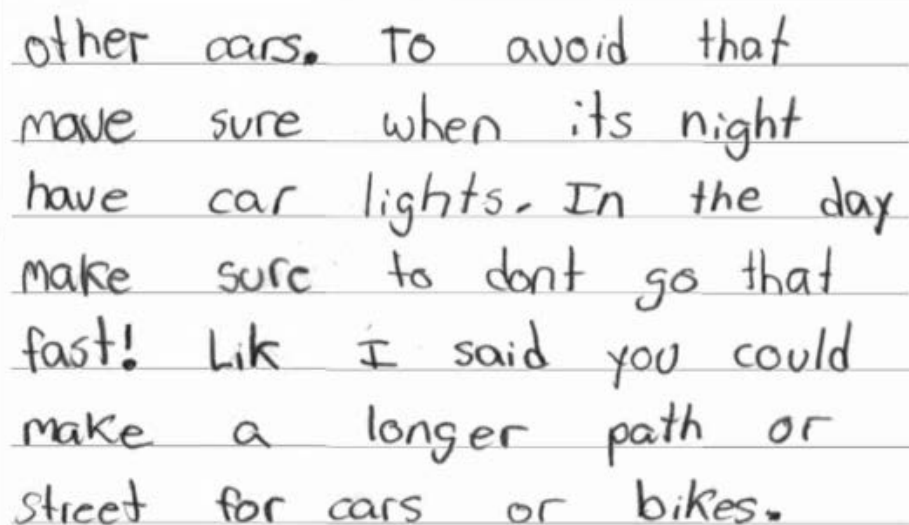 other cars. To avoid that
move sure when its night
have car lights. In the day
make sure to dont go that
fast! Lik I said you could
make a longer path or
street for cars or bikes.